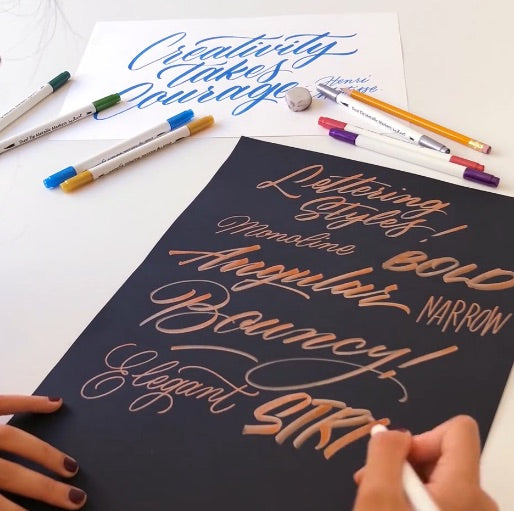 Creativity
takes
Courage
Henri
Matisse
Lettering
Styles!
Monoline
BOLD
Angular
NARROW
Bouncy!
Elegant
STRI